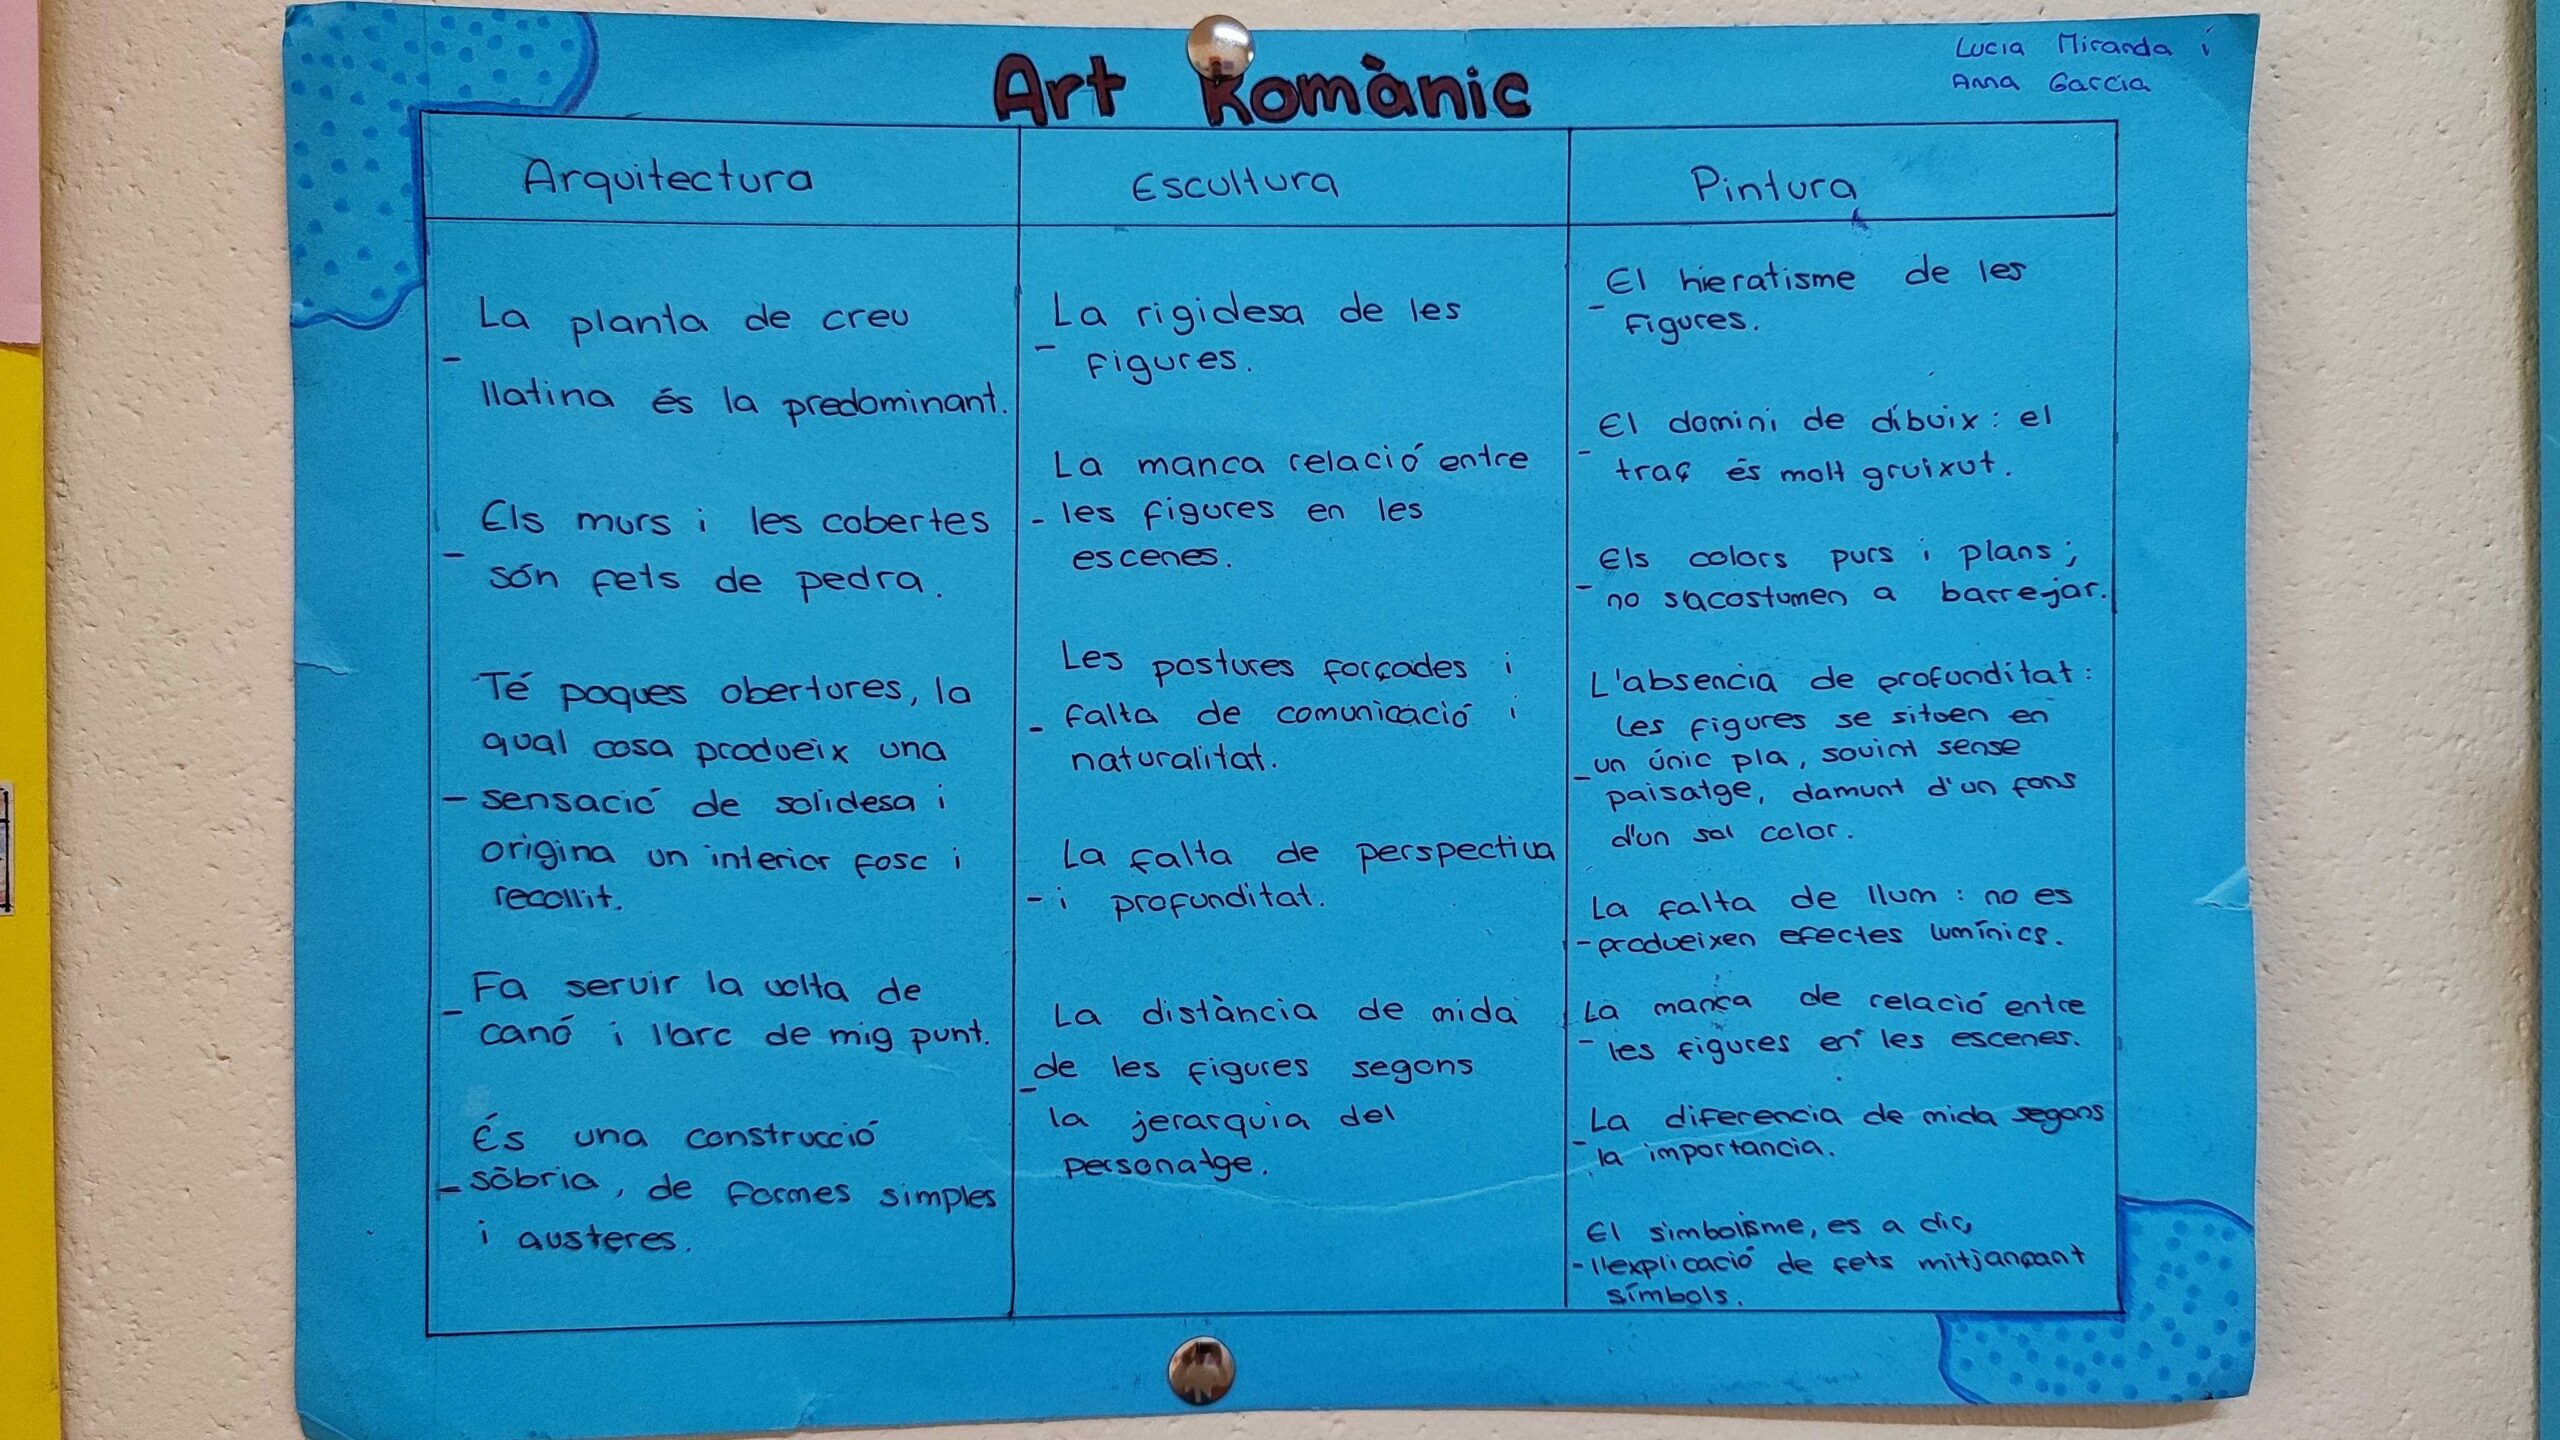 Lucia Miranda i
Anna García
Art Romànic
Arquitectura
- La planta de creu
llatina és la predominant.
- Els murs i les cobertes
són fets de pedra.
- Té poques obertures, la
qual cosa produeix una
sensació de solidesa i
origina un interior fosc i
recollit.
- Fa servir la volta de
canó i l'arc de mig punt.
- És una construcció
sòbria, de formes simples
i austeres.
Escultura
- La rigidesa de les
figures.
- La manca relació entre
les figures en les
escenes.
- Les postures forçades i
falta de comunicació i
naturalitat.
- La falta de perspectiva
i profunditat.
- La distància de mida
de les figures segons
la jerarquia del
personatge.
Pintura
- El hieratisme de les
figures.
- El domini de dibuix: el
traç és molt gruixut.
- Els colors purs i plans;
no s'acostumen a barrejar.
- L'absencia de profunditat:
les figures se situen en
un únic pla, sovint sense
paisatge, damunt d'un fons
d'un sol color.
- La falta de llum: no es
produeixen efectes lumínics.
- La manca de relació entre
les figures en les escenes.
- La diferencia de mida segons
la importancia.
- El simbolisme, es a dir,
l'explicació de fets mitjançant
símbols.